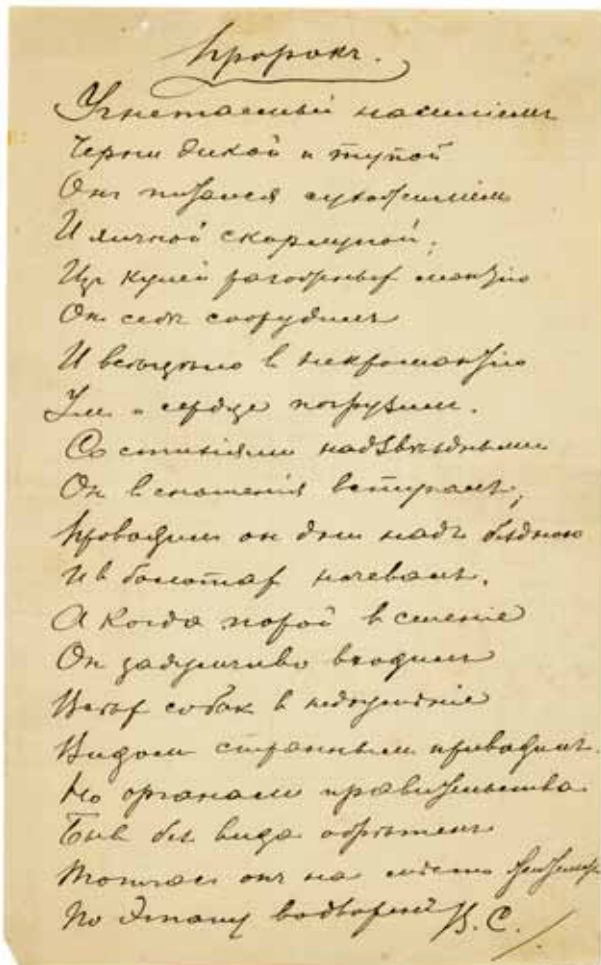 Пророкъ.
Угнетаемый насилiемъ
Черни дикой и тупой
Онъ питался сухожилiемъ
И яичной скорлупой.
Из кулей рогожных мантiю
Он себѣ соорудилъ
И всецѣло в некромантiю
Ум и сердце погрузил.
Со стихiями надзвѣздными
Он в сношенiя вступалъ,
Проводил он дни надъ бездною
И в болотах ночевалъ.
А когда порой в селенiе
Он задумчиво входилъ
Всѣх собак в недоумѣнiе
Видом странным приводилъ.
Но органами правительства
Быв без вида обрѣтенъ
Тотчас онъ на мѣсто жительства
По этапу водворенъ
В. С.